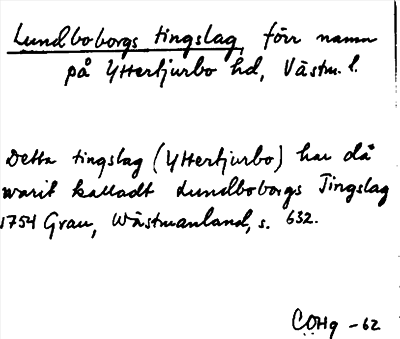 Lundboborgs tingslag, förr namn
på Ytterfjurbo hd, Västm. l.
Detta tingslag (Ytterfjurbo) har då
warit kalladt Lundboborgs Tingslag
1754 Grau, Wästmanland, s. 632.
CÖHg -62